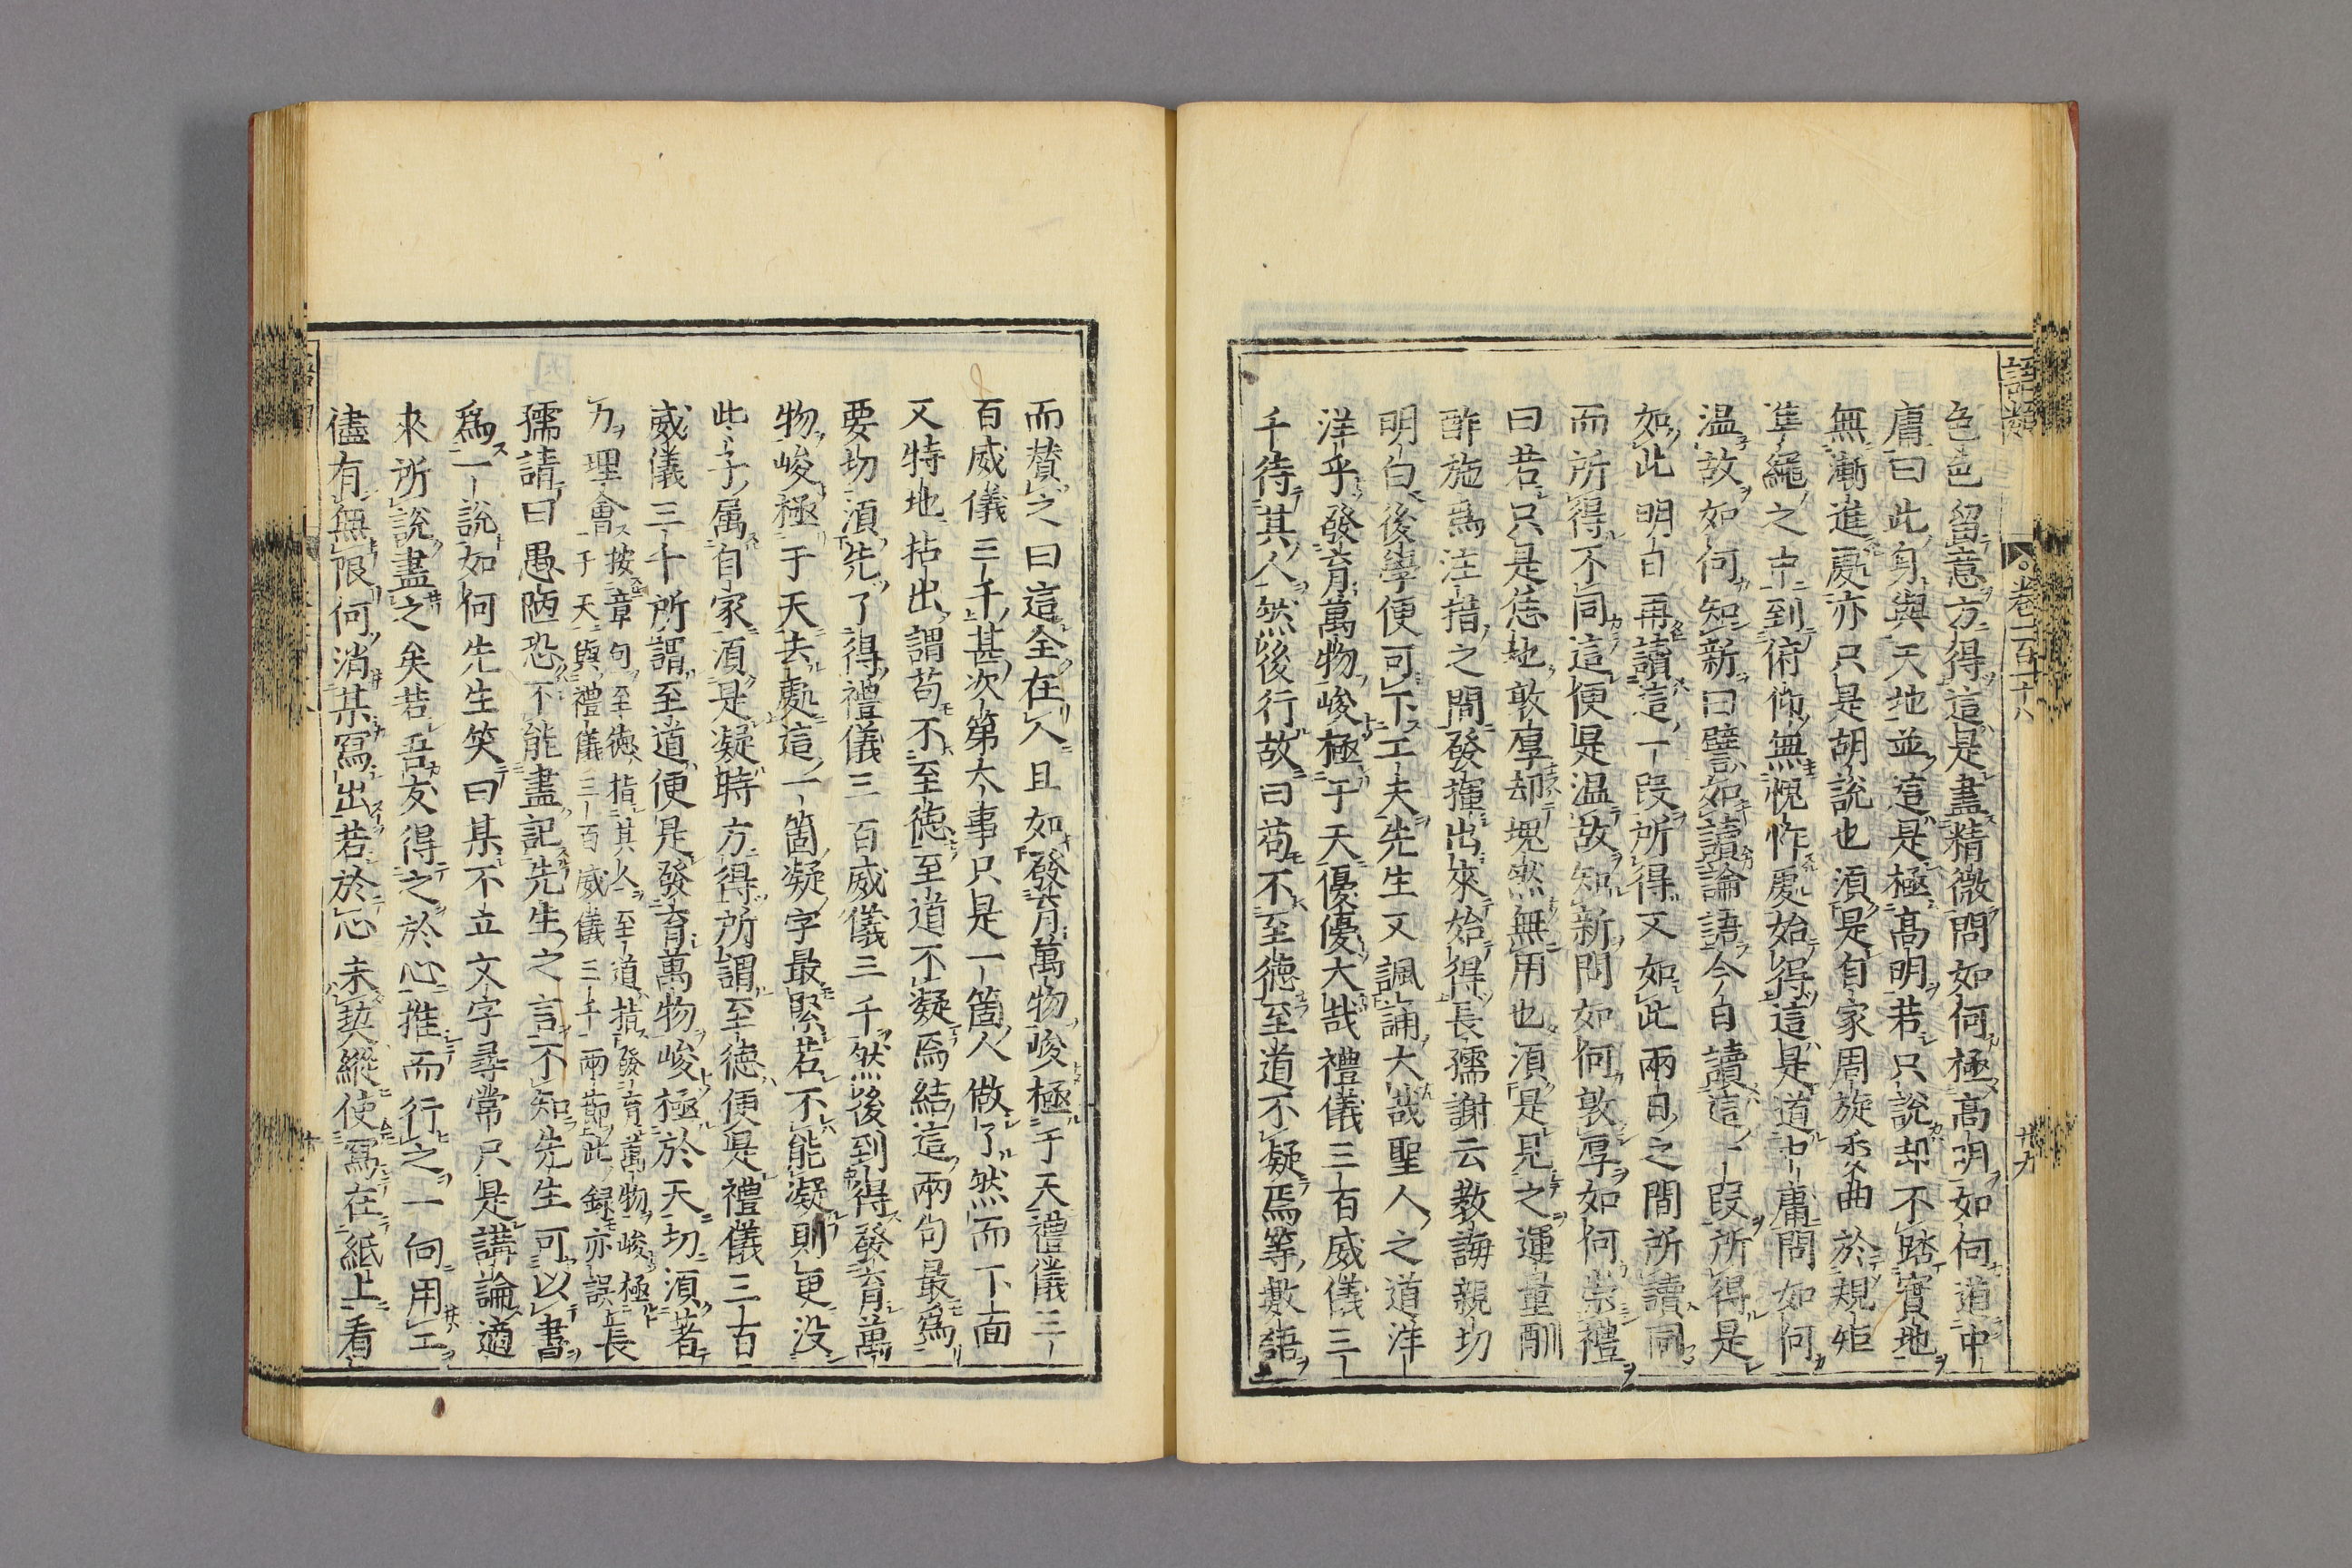 語類
卷一百十八
十九
色色留意方得這是盡精微問如何極高明如何道中
庸曰此身與天地並這是極高明若只說却不踏實地
無漸進處亦只是胡說也須是自家周旋委曲於規矩
準繩之中到俯仰無愧怍處始得這是道中庸問如何
温故如何知新曰譬如讀論語今日讀這一段所得是
如此明日再讀這一段所得又如此兩日之間所讀同
而所得不同這便是温故知新問如何敦厚如何崇禮
曰若只是恁地敦厚却塊然無用也須是見之運量酬
酢施爲注措之間發揮出來始得長孺謝云教誨親切
明白後學便可下工夫先生又諷誦大哉聖人之道洋
洋乎發育萬物峻極于天優優大哉禮儀三百威儀三
千待其人然後行故曰苟不至德至道不凝焉等數語
而賛之曰這全在人且如發育萬物峻極于天禮儀三
百威儀三千甚次第大事只是一箇人做了然而下面
又特地拈出謂苟不至德至道不凝焉結這兩句最爲
要切須先了得禮儀三百威儀三千然後到得發育萬
物峻極于天去處這一箇凝字最緊若不能凝則更没
此子屬自家須是凝時方得所謂至德便是禮儀三百
威儀三千所謂至道便是發育萬物峻極於天切須著
力理會按章句至德指其人至道指發育萬物峻極于天與禮儀三百威儀三千兩節此錄亦誤長
孺請曰愚陋恐不能盡記先生之言不知先生可以書
爲一說如何先生笑曰某不立文字尋常只是講論適
來所說盡之矣若吾友得之於心推而行之一向用工
儘有無限何消某寫出若於心未契縱使寫在紙上看